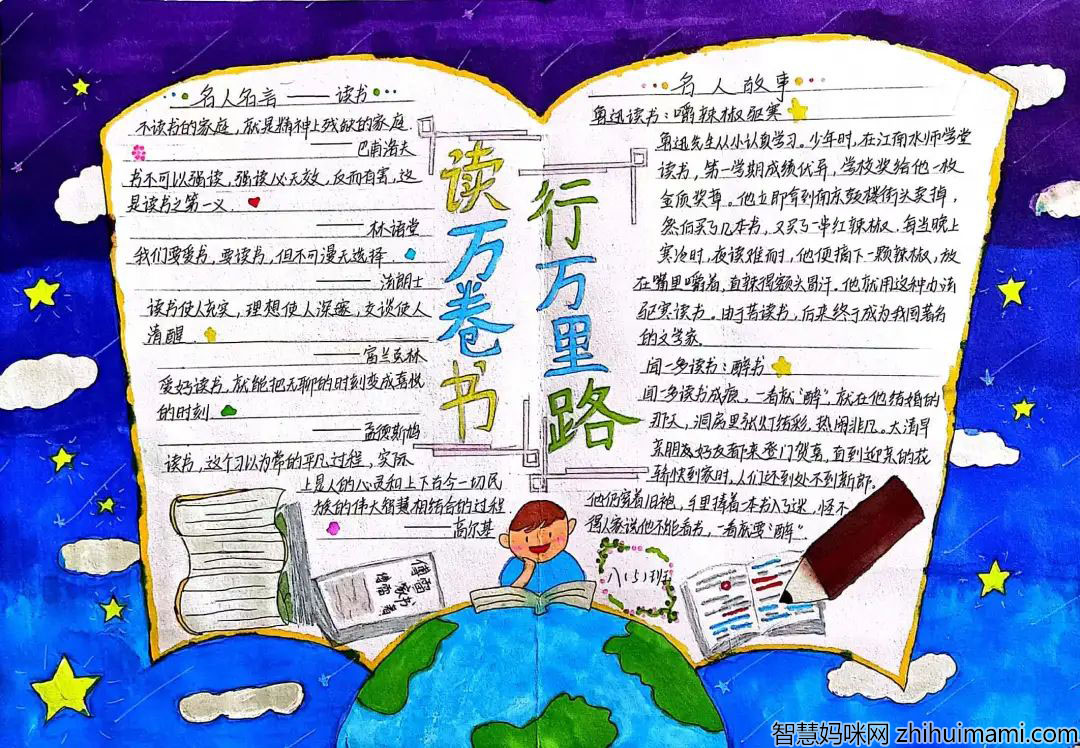 名人名言——读书
不读书的家庭，就是精神上残缺的家庭
——巴甫洛夫
书不可以强读，强读必无效，反而有害，这
是读书之第一义.
——林语堂
我们要爱书，要读书，但不可漫无选择
——汤朗士
读书使人充实，理想使人深邃，交谈使人
清醒.
——富兰克林
爱好读书，就能把无聊的时刻变成喜悦
的时刻
——孟德斯鸠
读书，这个习以为常的平凡过程，实际
上是人的心灵和上下古今一切民
族的伟大智慧相结合的过程
——高尔基
读万卷书
行万里路
名人故事
鲁迅读书：嚼辣椒驱寒
鲁迅先生从小认真学习。少年时，在江南水师学堂
读书，第一学期成绩优异，学校奖给他一枚
金质奖章。他立即拿到南京鼓楼街头卖掉，
然后买了几本书，又买了一串红辣椒，每当晚上
寒冷时，夜读难耐，他便摘下一颗辣椒，放
在嘴里嚼着，直辣得额头冒汗。他就用这种办法
驱寒读书。由于苦读书，后来终于成为我国著名
的文学家.
闻一多读书：醉书
闻一多读书成瘾，一看就"醉"，就在他结婚的
那天，洞房里张灯结彩，热闹非凡。大清早
亲朋友好友都来登门贺喜，直到迎亲的花
轿快到家时，人们还到处不到新郎。
他仍穿着旧袍，手里捧着一本书入了迷，怪不
得人家说他不能看书，一看就要"醉".
傅雷
家书
傅雷 著
八(5)班
智慧妈咪网 zhihuimami.com